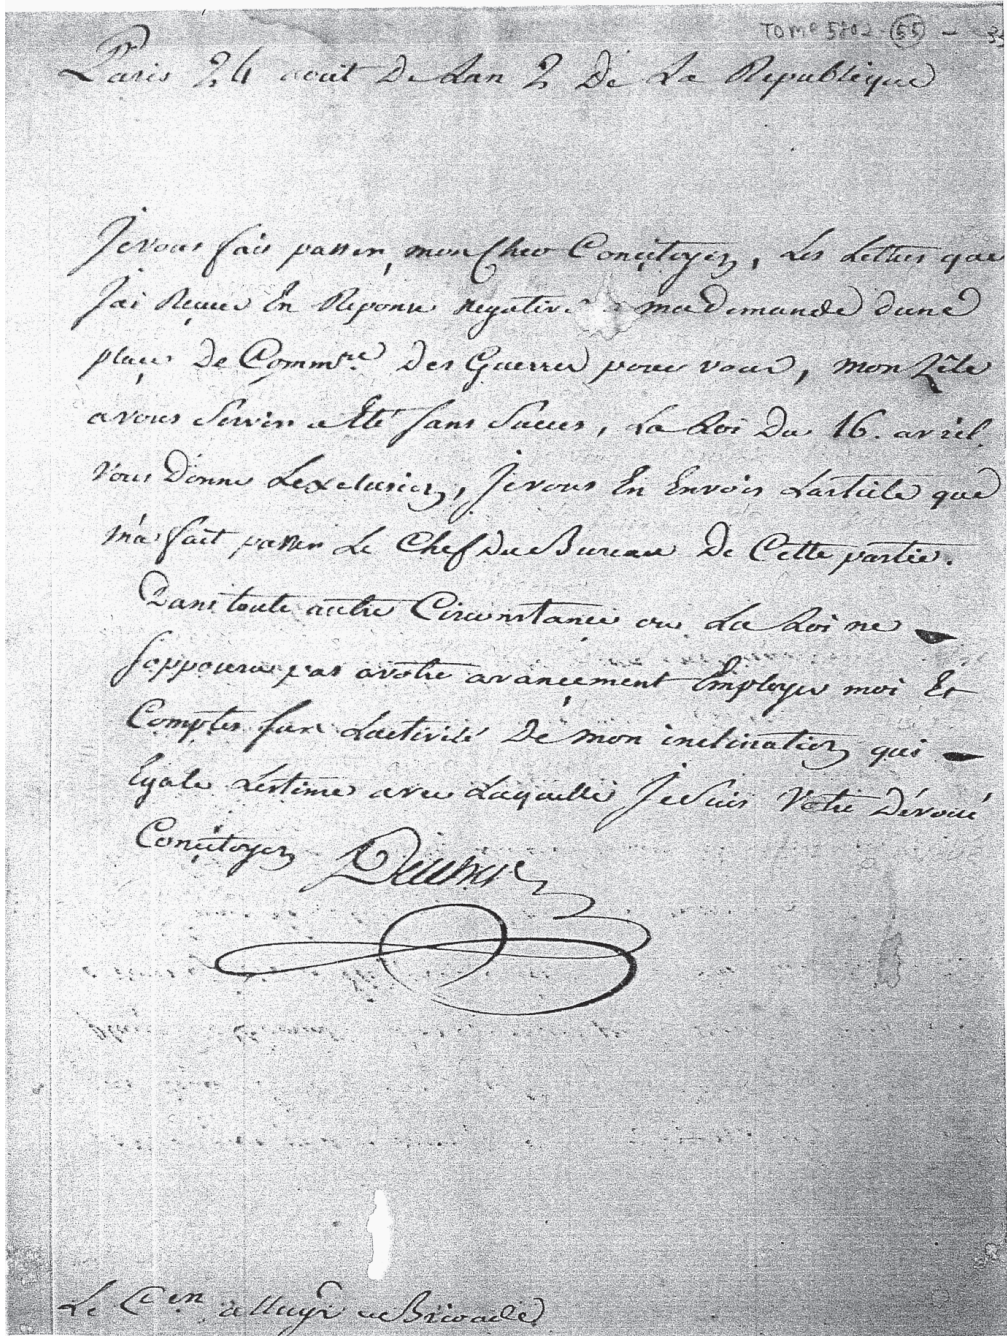 TOME 5202 (55) -
Paris 24 aout De Lan 2 De La Republique
Je vous fais passer, mon Cher Concitoyen, Les Lettres que
J'ai Recues En Reponse negative ma Demande dune
place De Commre. Des Guerres pour vous, mon Zêle
a vous Servir a Eté sans Succes, La Loi Du 16. avril
vous Donne Lexclusion, Je vous En Envois Larticle que
m'a fait passer Le Chef Du Bureau De Cette partie.
Dans toute autre Circonstance ou La Loi ne
sopposera pas avotre avancement Employes moi Et
Comptes sur Lactivité De mon inclination qui
Egale Lestime avec Laquelle Je Suis Votre Dévoué
Concitoyen
Le Cen a Brioude